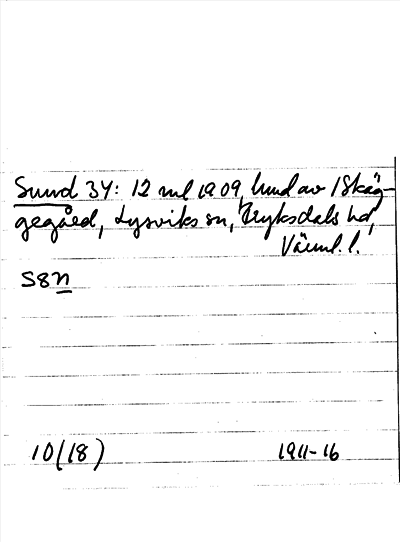 Sund 34: 12 ml 1909, hmd av 1 Skäg-
gegård, Lysviks sn, Fryksdals hd,
Värml. l.
S8n
10(18) 1911-16